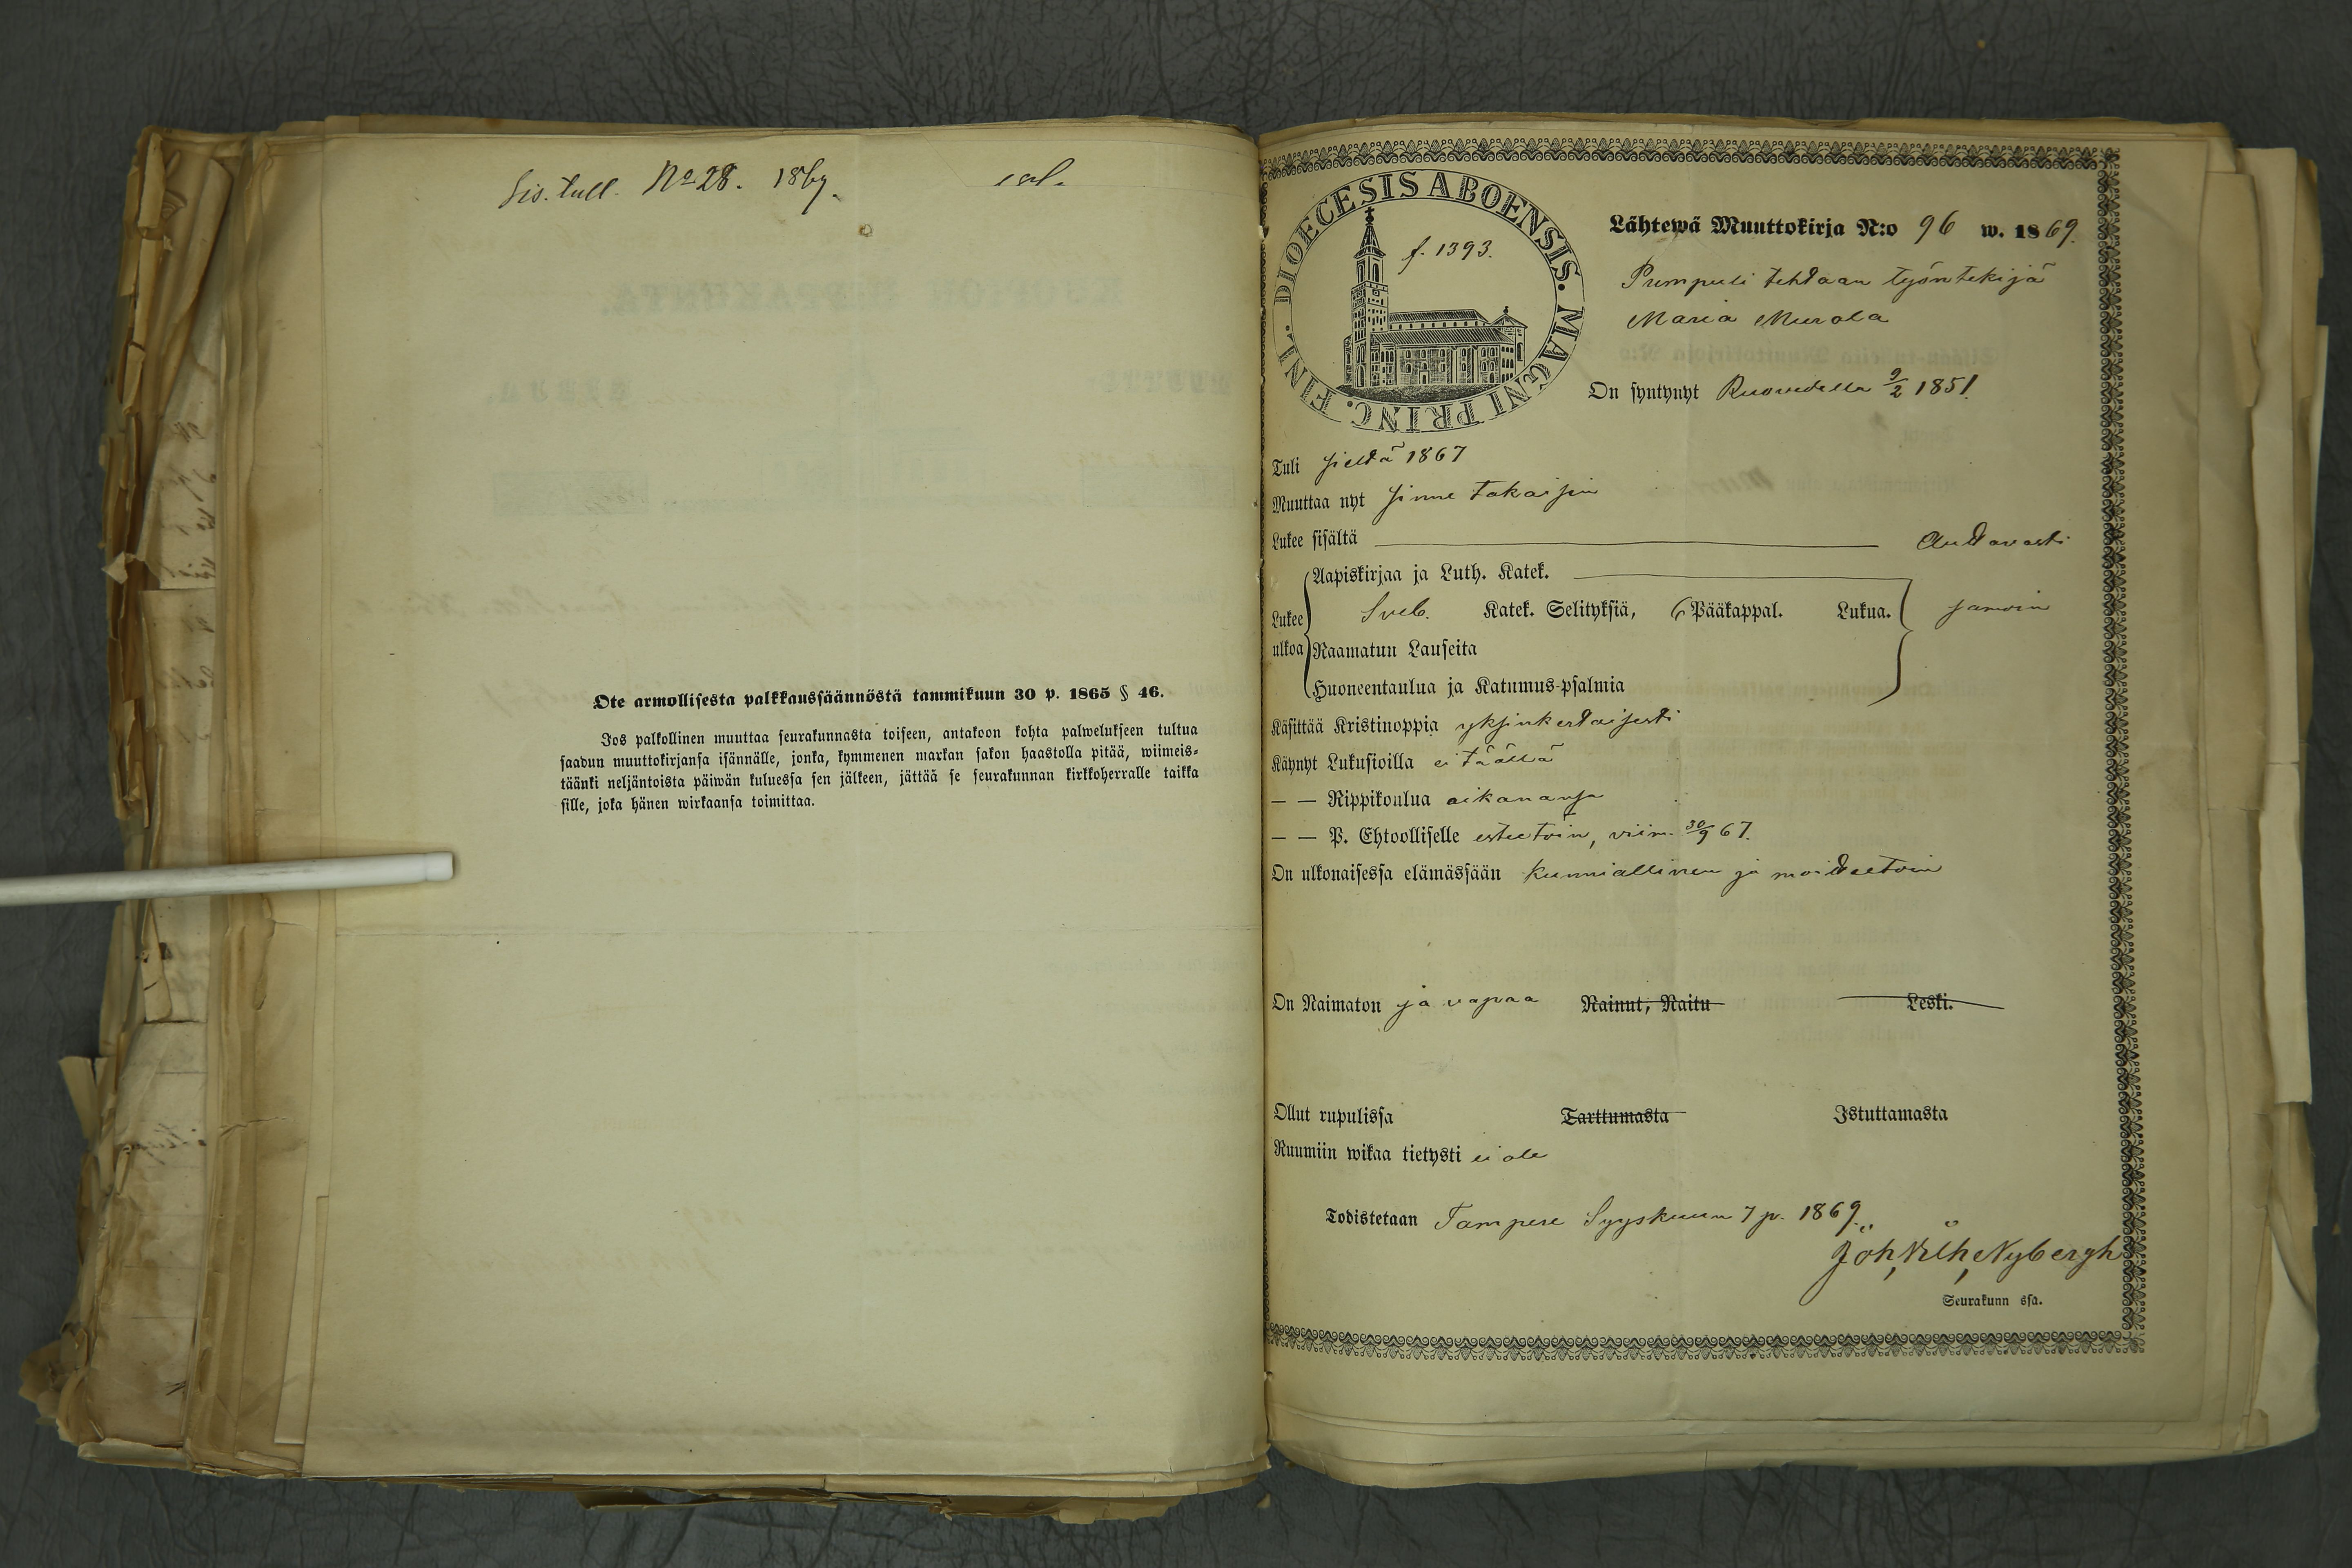 Sis. tull. No 28. 1869.
Ote armollisesta palkkaussäännöstä tammikuun 30 p. 1865 § 46.
Jos palkollinen muuttaa seurakunnasta toiseen, antakoon kohta palwelukseen tultua
saadun muuttokirjansa isännälle, jonka, kymmenen markan sakon haastolla pitää, wiimeis-
täänki neljäntoista päiwän kuluessa sen jälkeen, jättää se seurakunnan kirkkoherralle taikka
sille, joka hänen wirkaansa toimittaa.
DIOECESIS ABOENSIS. MAGNI PRINC. FINL.
f. 1393.
Lähtewä Muuttokirja N:o 96 w. 1869.
Pumpuli tehdaan työntekijä
Maria Murola
On syntynyt Ruovedella 9/2 1851.
Tuli sieldä 1867
Muuttaa nyt sinne takaisin
Lukee sisältä Audavasti
Aapiskirjaa ja Luth. Katek.
Lukee ulkoa Sveb. Katek. Selityksiä, 6 Pääkappal. Lukua. samoin
Raamatun Lauseita
Huoneentaulua ja Katumus-psalmia
Käsittää Kristinoppia yksinkerdaisesti
Käynyt Lukusioilla ei täällä
— — Rippikoulua aikanansa
— — P. Ehtoolliselle esteetöin, viim. 30/9 67.
On ulkonaisessa elämässään kunniallinen ja moideetoin
On Naimaton ja vapaa Nainut, Naitu Leski.
Ollut rupulissa Tarttumasta Istuttamasta
Ruumiin wikaa tietysti ei ole
Todistetaan Tampere Syyskuun 7 p. 1869.
Joh. Vilh. Nybergh
Seurakunn ssa.